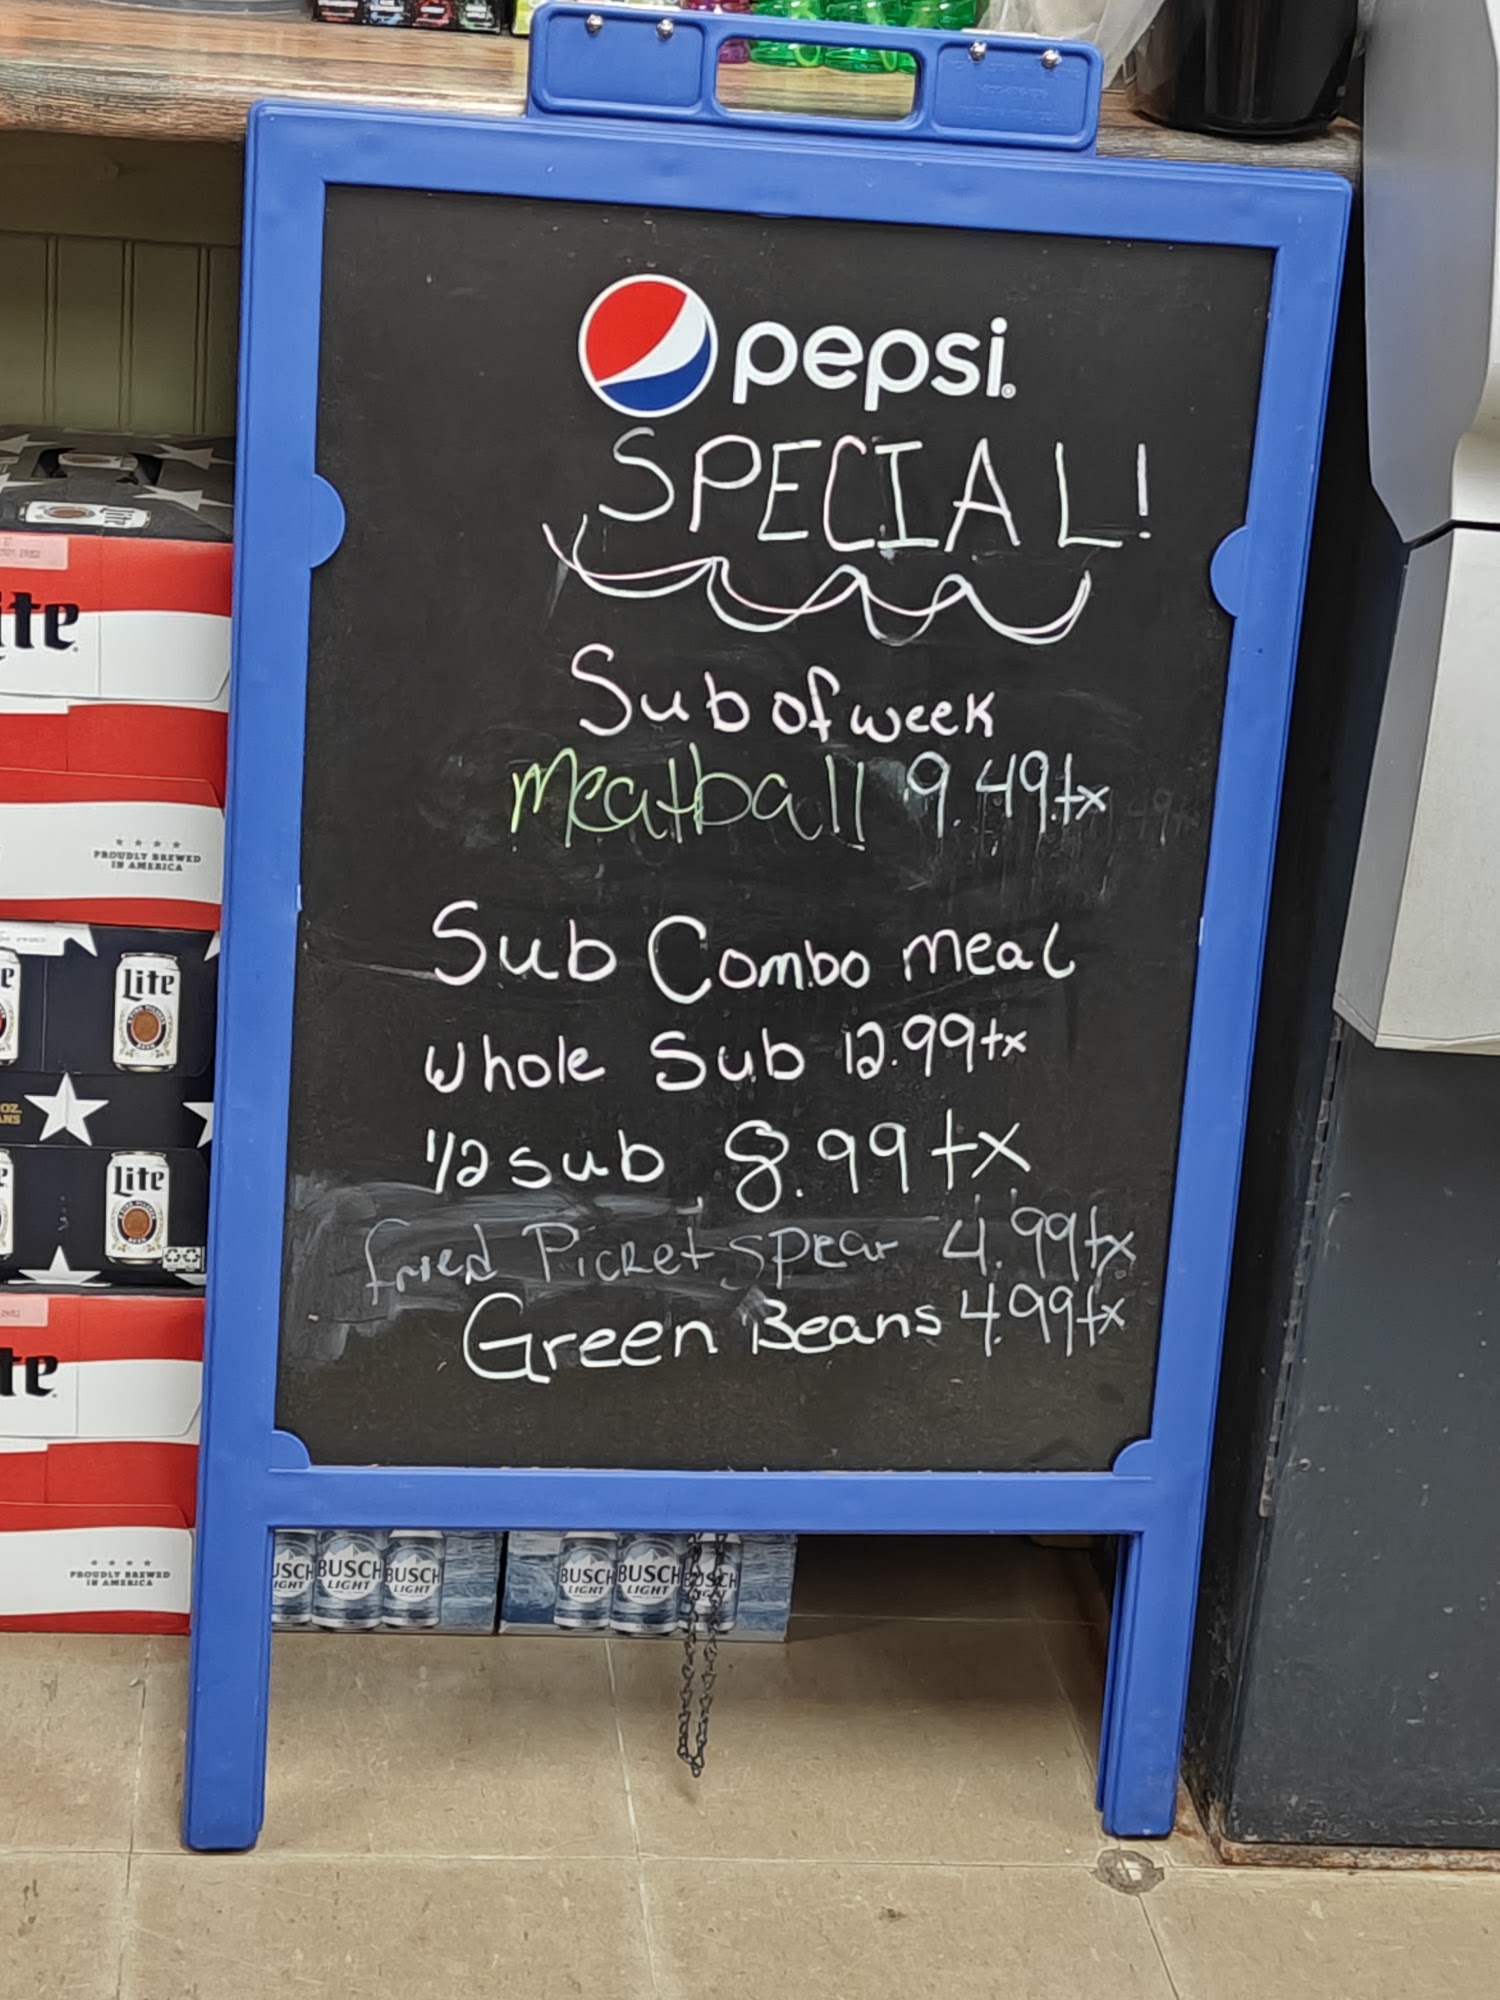 pepsi
SPECIAL!
Sub of week
Meatball 9.49tx
Sub Combo meal
whole Sub 12.99tx
1/2 sub 8.99tx
fried Picket spear 4.99tx
Green Beans 4.99tx
ite
PROUDLY BREWED
IN AMERICA
Lite
Lite
te
PROUDLY BREWED
IN AMERICA
BUSCH LIGHT
BUSCH LIGHT
BUSCH LIGHT
BUSCH LIGHT